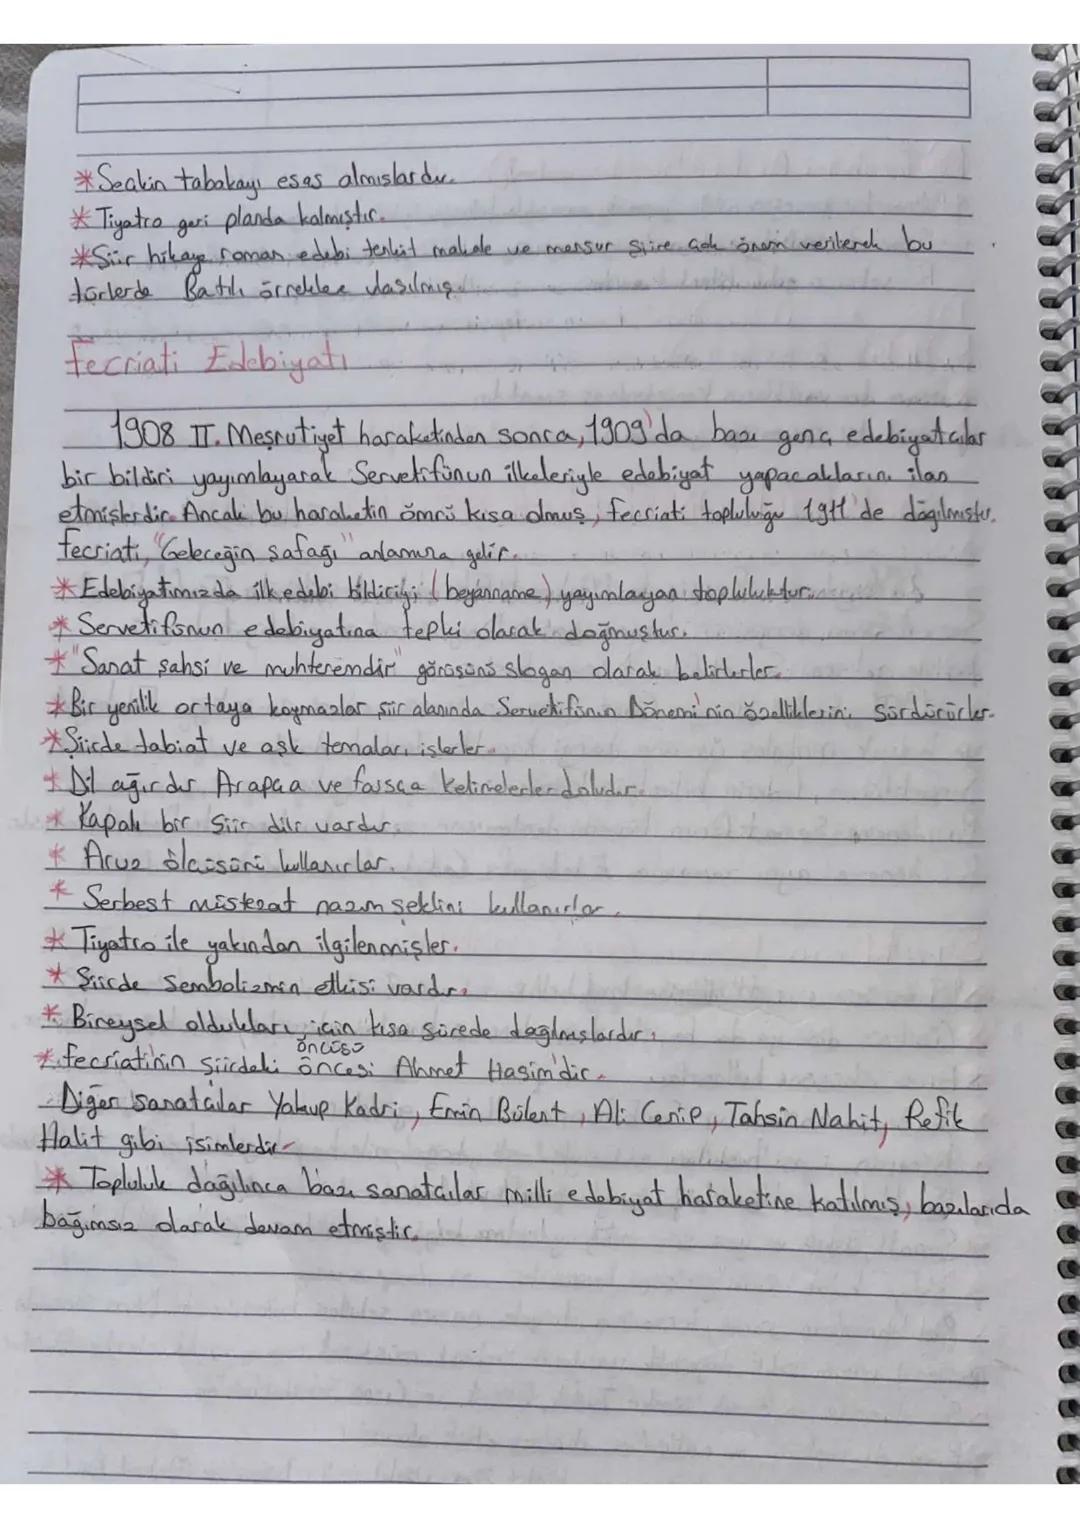 * Seçkin tabakayı esas almışlardır.
* Tiyatro geri planda kalmıştır.
* Şiir hikaye roman edebi tenkit makale ve mensur şiire çok önem verilerek bu
türlerde Batılı örneklere ulaşılmış.
Fecriati Edebiyatı
1908 II. Meşrutiyet haraketinden sonra, 1909'da bazı genç edebiyatcılar
bir bildiri yayımlayarak Servetifünun ilkeleriyle edebiyat yapacaklarını ilan
etmişlerdir. Ancak bu haraketin ömrü kısa olmuş, fecriati topluluğu 1911'de dağılmıştır.
Fecriati, "Geleceğin şafağı" anlamına gelir.
* Edebiyatımızda ilk edebi bildiriyi (beyanname) yayımlayan topluluktur.
* Servetifünun edebiyatına tepki olarak doğmuştur.
* "Sanat şahsi ve muhteremdir" görüşünü slogan olarak belirlerler.
* Bir yenilik ortaya koymazlar şiir alanında Servetifünun Dönemi'nin özelliklerini sürdürürler.
* Şiirde tabiat ve aşk temaları işlerler.
* Dil ağırdır Arapça ve farsça kelimelerler doludur.
* Kapalı bir şiir dili vardır.
* Aruz ölçüsünü kullanırlar.
* Serbest müstezat nazım şeklini kullanırlar.
* Tiyatro ile yakından ilgilenmişler.
* Şiirde Sembolizmin etkisi vardır.
* Bireysel oldukları için kısa sürede dağılmışlardır.
öncüsü
* Fecriatinin şiirdeki öncesi Ahmet Haşim'dir.
Diğer sanatçılar Yakup Kadri, Emin Bülent, Ali Canip, Tahsin Nahit, Refik
Halit gibi isimlerdir.
* Topluluk dağılınca bazı sanatçılar milli edebiyat haraketine katılmış, bazılarıda
bağımsız olarak devam etmiştir.